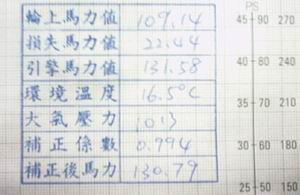 輪上馬力値 109.14
損失馬力値 22.44
引擎馬力値 131.58
環境溫度 16.5°C
大氣壓力 1013
補正係數 0.994
補正後馬力 130.79
PS
45 90 270
40 80 240
35 70 210
30 60 180
25 50 150